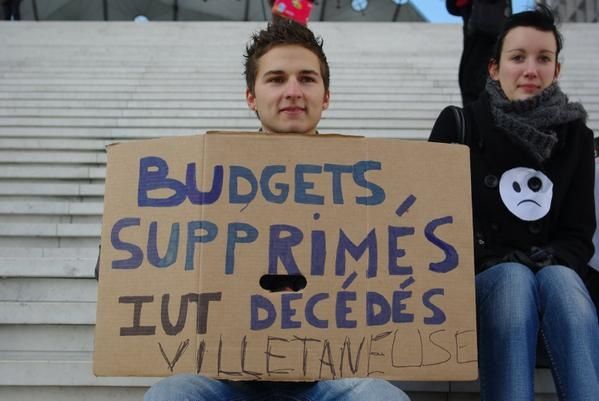 BUDGETS
SUPPRIMÉS
IUT DECÉDÉS
VILLETANEUSE